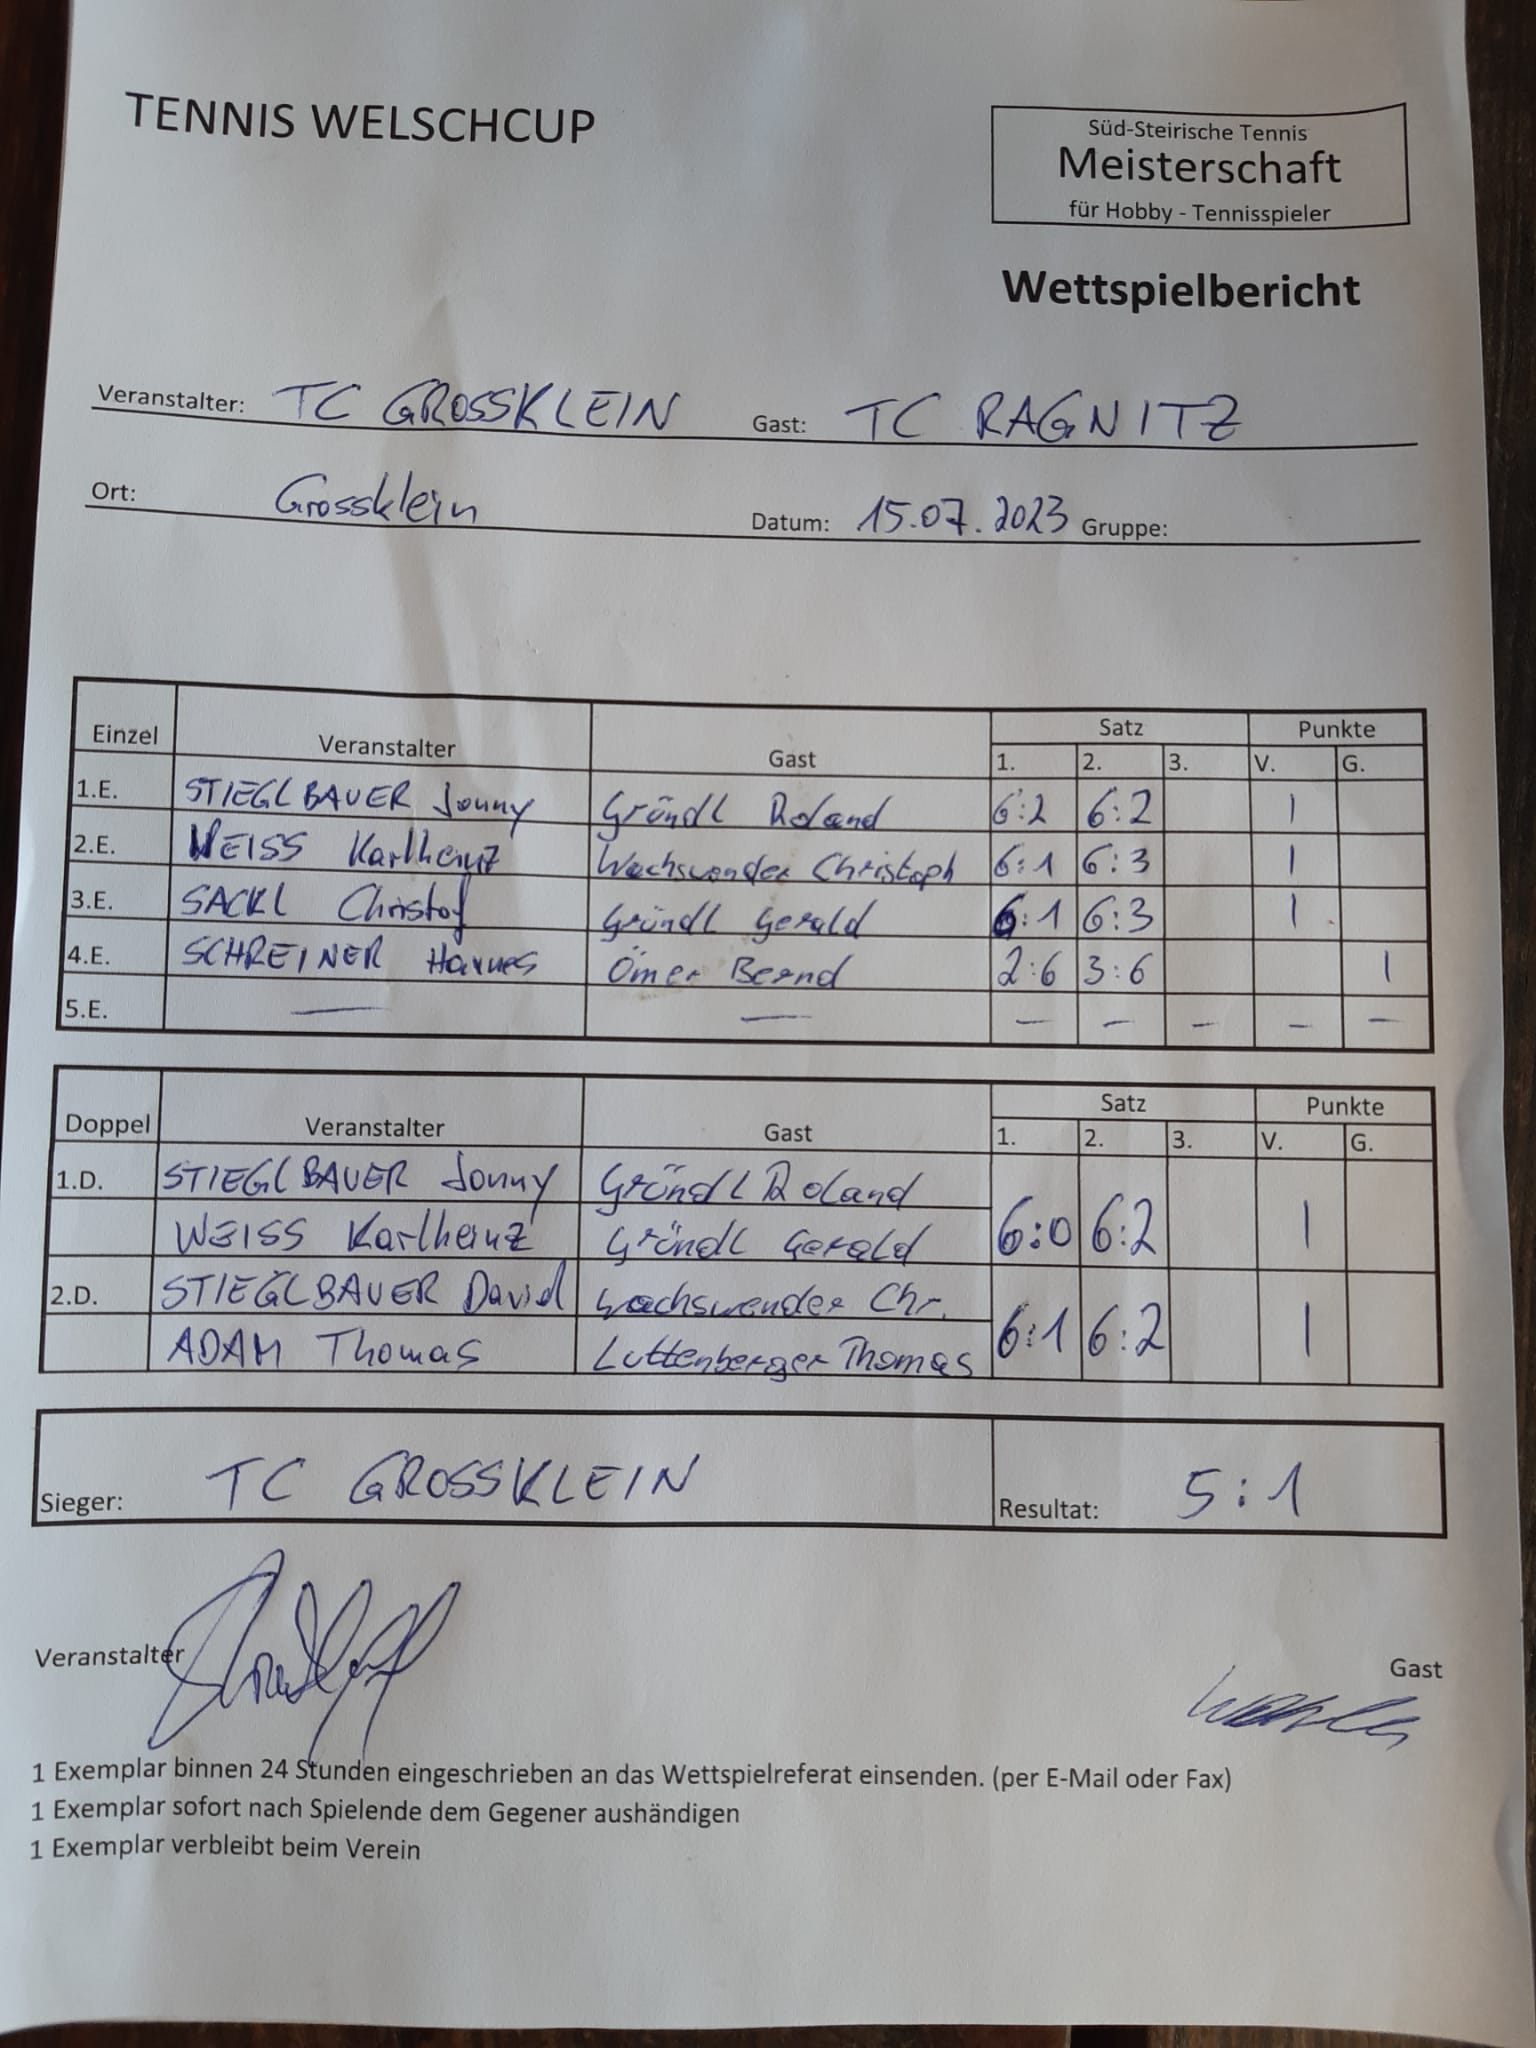 TENNIS WELSCHCUP
Süd-Steirische Tennis
Meisterschaft
für Hobby - Tennisspieler
Wettspielbericht
Veranstalter: TC GROSSKLEIN Gast: TC RAGNITZ
Ort: Grossklein Datum: 15.07.2023 Gruppe:
Einzel Veranstalter Gast Satz Punkte
1. 2. 3. V. G.
1.E. STIEGLBAUER Jonny Gründl Roland 6:2 6:2 1
2.E. WEISS Karlheinz Wachswender Christoph 6:1 6:3 1
3.E. SACKL Christof Gründl Gerald 6:1 6:3 1
4.E. SCHREINER Hannes Ömer Bernd 2:6 3:6 1
5.E. — — — — — — —
Doppel Veranstalter Gast Satz Punkte
1. 2. 3. V. G.
1.D. STIEGLBAUER Jonny Gründl Roland
WEISS Karlheinz Gründl Gerald 6:0 6:2 1
2.D. STIEGLBAUER David Wachswender Chr.
ADAM Thomas Luttenberger Thomas 6:1 6:2 1
Sieger: TC GROSSKLEIN Resultat: 5:1
Veranstalter Gast
1 Exemplar binnen 24 Stunden eingeschrieben an das Wettspielreferat einsenden. (per E-Mail oder Fax)
1 Exemplar sofort nach Spielende dem Gegener aushändigen
1 Exemplar verbleibt beim Verein